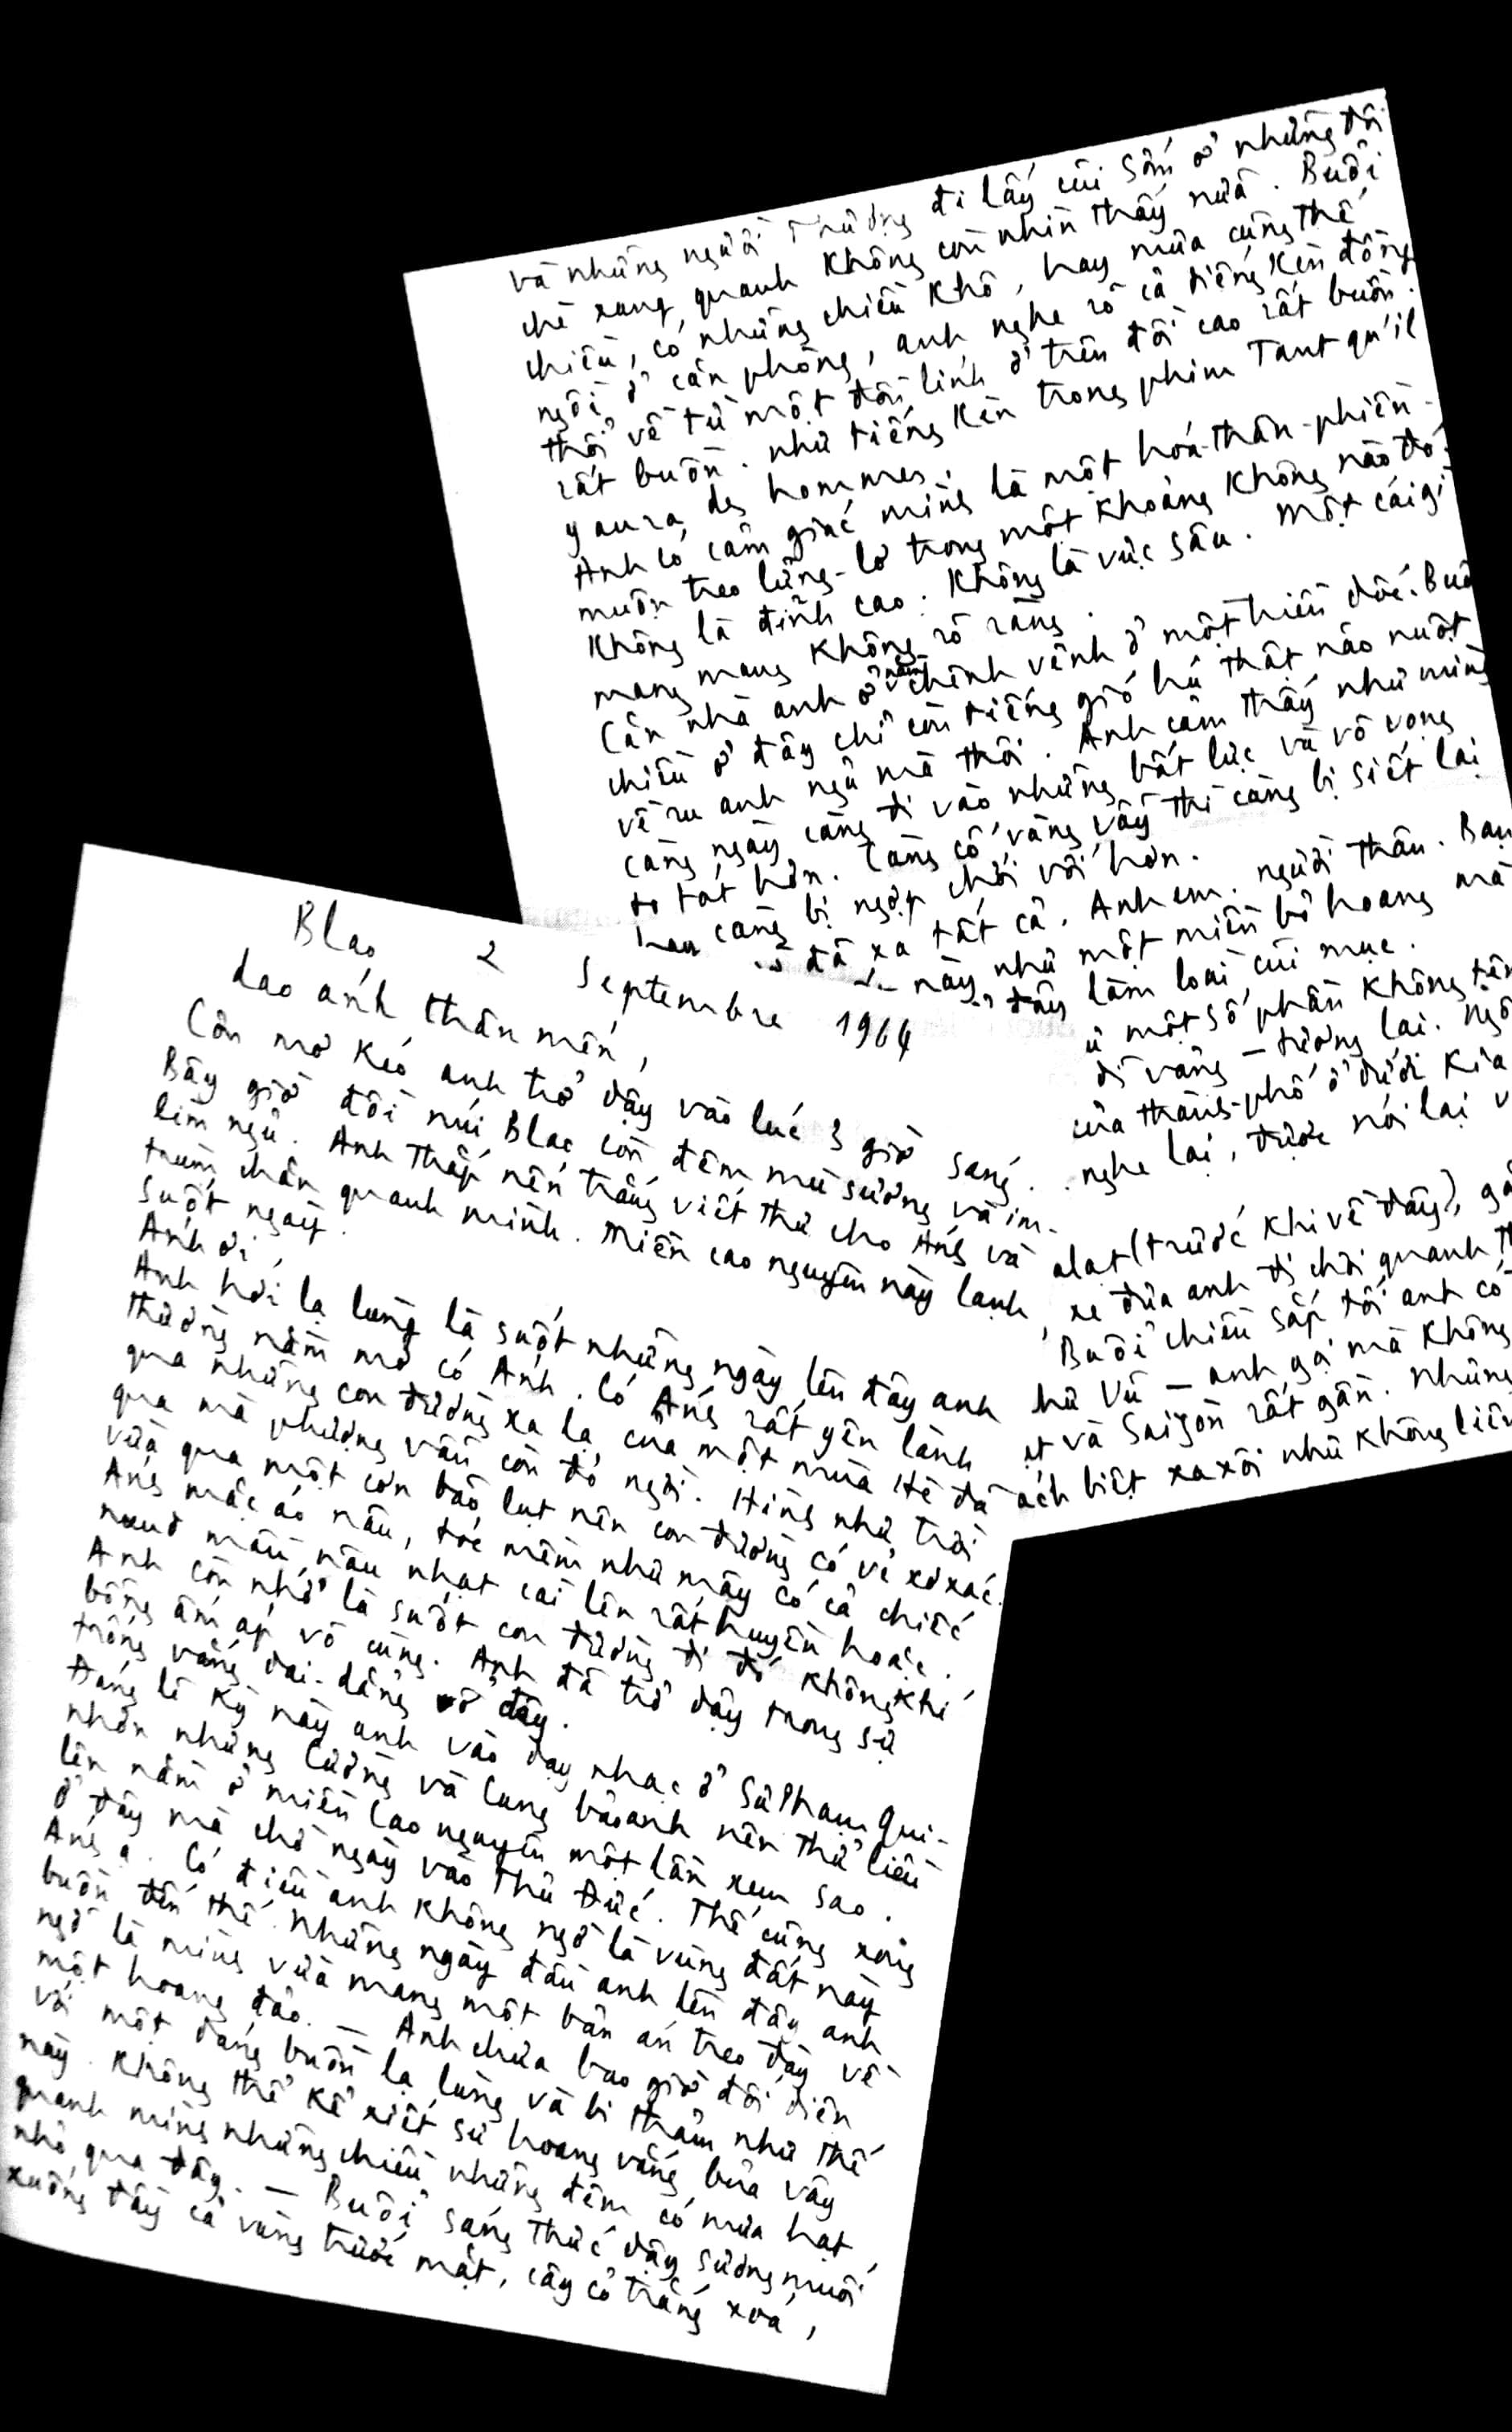 Blao 2 Septembre 1964
Dao ánh thân mến,
Cơn mơ kéo anh trở dậy vào lúc 3 giờ sáng.
Bây giờ đồi núi Blao còn đêm mù sương và im-
lìm ngủ. Anh thắp nến trắng viết thư cho Ánh và
trùm chăn quanh mình. Miền cao nguyên này lạnh
suốt ngày.
Ánh ơi,
Anh hơi lạ lùng là suốt những ngày lên đây anh
thường nằm mơ có Ánh. Có Ánh rất yên lành
qua những con đường xa lạ của một mùa Hè đã
qua mà phượng vẫn còn đỏ ngòi. Hình như trời
vừa qua một cơn bão lụt nên con đường có vẻ xơ xác.
Ánh mặc áo nâu, tóc mềm như mây có cả chiếc
nơ màu nâu nhạt cài lên rất huyền hoặc.
Anh còn nhớ là suốt con đường đi đó không khí
bỗng ấm áp vô cùng. Anh đã trở dậy trong sự
trống vắng dai-dẳng ở đây.
Đáng lẽ kỳ này anh vào dạy nhạc ở Sư Phạm Qui-
nhơn nhưng Cường và Cung bảo anh nên thử liều
lên nằm ở miền Cao nguyên một lần xem sao.
Ở đây mà chờ ngày vào Thủ Đức. Thế cũng xong
Ánh ạ. Có điều anh không ngờ là vùng đất này
buồn đến thế. Những ngày đầu anh lên đây anh
ngỡ là mình vừa mang một bản án treo đày về
một hoang đảo. — Anh chưa bao giờ đối diện
với một dáng buồn lạ lùng và bi thảm như thế
này. Không thể kể xiết sự hoang vắng bủa vây
quanh mình những chiều, những đêm có mưa hạt
nhỏ qua đây. — Buổi sáng thức dậy sương muối
xuống đầy cả vùng trước mặt, cây cỏ trắng xoá,
và những người Thượng đi lấy củi sớm ở những đồi
chè xung quanh không còn nhìn thấy nữa. Buổi
chiều, có những chiều khô, hay mưa cũng thế
ngồi ở căn phòng, anh nghe rõ cả tiếng kèn đồng
thổi về từ một đồn lính ở trên đồi cao rất buồn.
rất buồn. như tiếng kèn trong phim Tant qu'il
y aura des hommes.
Anh có cảm giác mình là một hoá-thân-phiền-
muộn treo lửng-lơ trong một khoảng không nào đó.
Không là đỉnh cao. Không là vực sâu. Một cái gì
mang mang không rõ ràng.
Căn nhà anh ở nằm chênh vênh ở một triền dốc. Buổi
chiều ở đây chỉ còn tiếng gió hú thật não nuột
về ru anh ngủ mà thôi. Anh cảm thấy như mình
càng ngày càng đi vào những bất lực và vô vọng
to tát hơn. Càng cố vùng vẫy thì càng bị siết lại
hay càng bị ngợp chới với hơn.
đã xa tất cả. Anh em. người thân. Bạn
này như một miền bỏ hoang mà
đây làm loài củi mục.
ư một số phần không tên
dĩ vãng — tương lai. Ngồi
của thành-phố ở dưới kia
nghe lại, được nói lại v
alat (trước khi về đây), gặ
xe đưa anh đi chơi quanh th
Buổi chiều sắp tối anh có
hư Vũ — anh gọi mà không
ạt và Saigon rất gần. Nhưng
ách biệt xa xôi như không liên